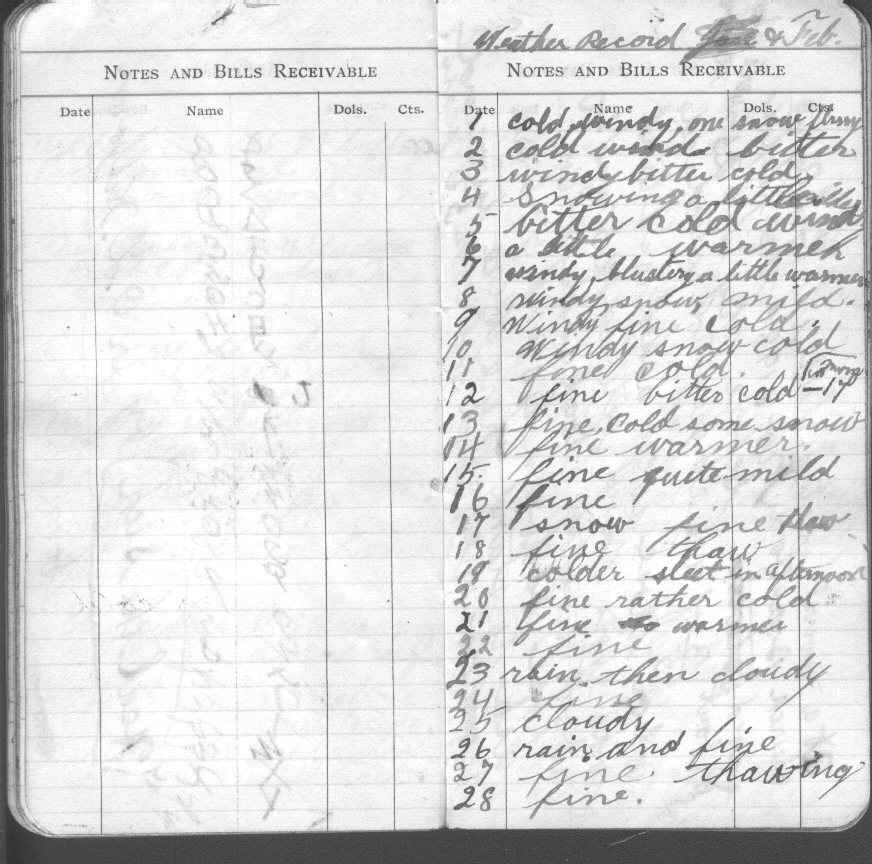 NOTES AND BILLS RECEIVABLE
Date Name Dols. Cts.
Weather Record Jan & Feb.
NOTES AND BILLS RECEIVABLE
Date Name Dols. Cts.
1 cold, windy, one snow flurry
2 cold wind bitter
3 windy bitter cold,
4 Snowing a little
5 bitter cold wind
6 a little warmer
7 windy, blustery a little warmer
8 windy, snow, mild.
9 Windy fine cold.
10 Windy snow cold
11 fine cold.
12 fine bitter cold -17
13 fine, cold some snow
14 fine warmer.
15. fine quite mild
16 fine
17 snow fine thaw
18 fine thaw
19 colder sleet in afternoon
20 fine rather cold
21 fine warmer
22 fine
23 rain then cloudy
24 fine
25 cloudy
26 rain and fine
27 fine thawing
28 fine.